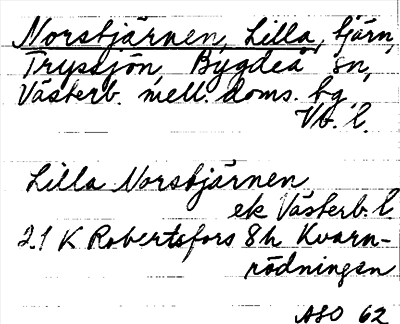 Norstjärnen, Lilla, tjärn,
Trysjön, Bygdeå sn,
Västerb. mell. doms. bg,
Vb. l.
Lilla Norstjärnen
ek Västerb. l.
21 K Robertsfors 8h Kvarn-
rödningen
ASO 62